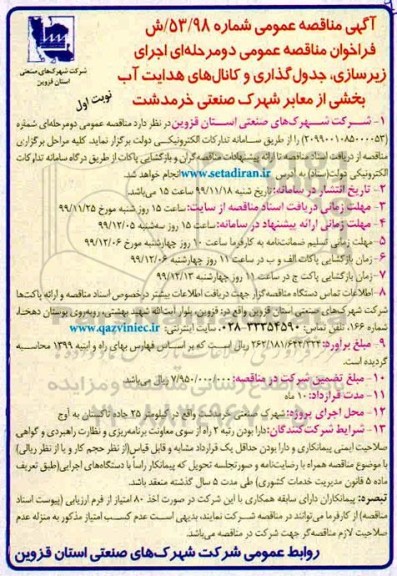 آگهی مناقصه عمومی شماره ۵۳/۹۸/ش
فراخوان مناقصه عمومی دومرحله‌ای اجرای
زیرسازی، جدول‌گذاری و کانال‌های هدایت آب
بخشی از معابر شهرک صنعتی خرمدشت
شرکت شهرک‌های صنعتی
استان قزوین
نوبت اول
۱- شرکت شهرک‌های صنعتی استان قزوین در نظر دارد مناقصه عمومی دومرحله‌ای شماره
(۲۰۹۹۰۰۱۰۸۵۰۰۰۰۵۳) را از طریق سامانه تدارکات الکترونیکی دولت برگزار نماید. کلیه مراحل برگزاری
مناقصه از دریافت اسناد مناقصه تا ارائه پیشنهادات مناقصه‌گران و بازگشایی پاکات از طریق درگاه سامانه تدارکات
الکترونیکی دولت(ستاد) به آدرس www.setadiran.ir انجام خواهد شد.
۲- تاریخ انتشار در سامانه: تاریخ شنبه ۹۹/۱۱/۱۸ ساعت ۱۵ می‌باشد.
۳- مهلت زمانی دریافت اسناد مناقصه از سایت: ساعت ۱۵ روز شنبه مورخ ۹۹/۱۱/۲۵
۴- مهلت زمانی ارائه پیشنهاد در سامانه: ساعت ۱۵ روز سه‌شنبه ۹۹/۱۲/۰۵
۵- مهلت زمانی تسلیم ضمانت‌نامه به کارفرما ساعت ۱۰ روز چهارشنبه مورخ ۹۹/۱۲/۰۶
۶- زمان بازگشایی پاکات الف و ب در ساعت ۱۱ روز چهارشنبه ۹۹/۱۲/۰۶
۷- زمان بازگشایی پاکت ج در ساعت ۱۱ روز چهارشنبه ۹۹/۱۲/۱۳
۸- اطلاعات تماس دستگاه مناقصه‌گزار جهت دریافت اطلاعات بیشتر در خصوص اسناد مناقصه و ارائه پاکت‌ها
شرکت شهرک‌های صنعتی استان قزوین واقع در: قزوین، بلوار آیت‌اله شهید بهشتی، روبه‌روی بوستان دهخدا،
شماره ۱۶۶، تلفن تماس: ۳۳۳۵۴۵۹۰-۰۲۸ سایت اینترنتی: www.qazviniec.ir
۹- مبلغ برآورد: ۲۶۲/۱۸۱/۶۲۲/۳۲۴ ریال است که بر اساس فهارس بهای راه و ابنیه ۱۳۹۹ محاسبه
گردیده است.
۱۰- مبلغ تضمین شرکت در مناقصه: ۷/۹۵۰/۰۰۰/۰۰۰ ریال می‌باشد.
۱۱- مدت قرارداد: ۱۰ ماه
۱۲- محل اجرای پروژه: شهرک صنعتی خرمدشت واقع در کیلومتر ۲۵ جاده تاکستان به آوج
۱۳- شرایط شرکت‌کنندگان: دارا بودن رتبه ۲ راه از سوی معاونت برنامه‌ریزی و نظارت راهبردی و گواهی
صلاحیت ایمنی پیمانکاری و دارا بودن حداقل یک قرارداد مشابه و قابل قیاس(از نظر حجم کار و یا از نظر ریالی)
با موضوع مناقصه همراه با رضایت‌نامه و صورتجلسه تحویل که پیمانکار راساً با دستگاه‌های اجرایی(طبق تعریف
ماده ۵ قانون مدیریت خدمات کشوری) طی مدت ۵ سال گذشته منعقد باشد.
تبصره: پیمانکاران دارای سابقه همکاری با این شرکت در صورت اخذ ۸۰ امتیاز از فرم ارزیابی (پیوست اسناد
مناقصه) از کارفرما می‌توانند در مناقصه شرکت نمایند، بدیهی است عدم کسب امتیاز مذکور به منزله عدم
صلاحیت لازم مناقصه‌گر جهت شرکت در مناقصه می‌باشد.
روابط عمومی شرکت شهرک‌های صنعتی استان قزوین